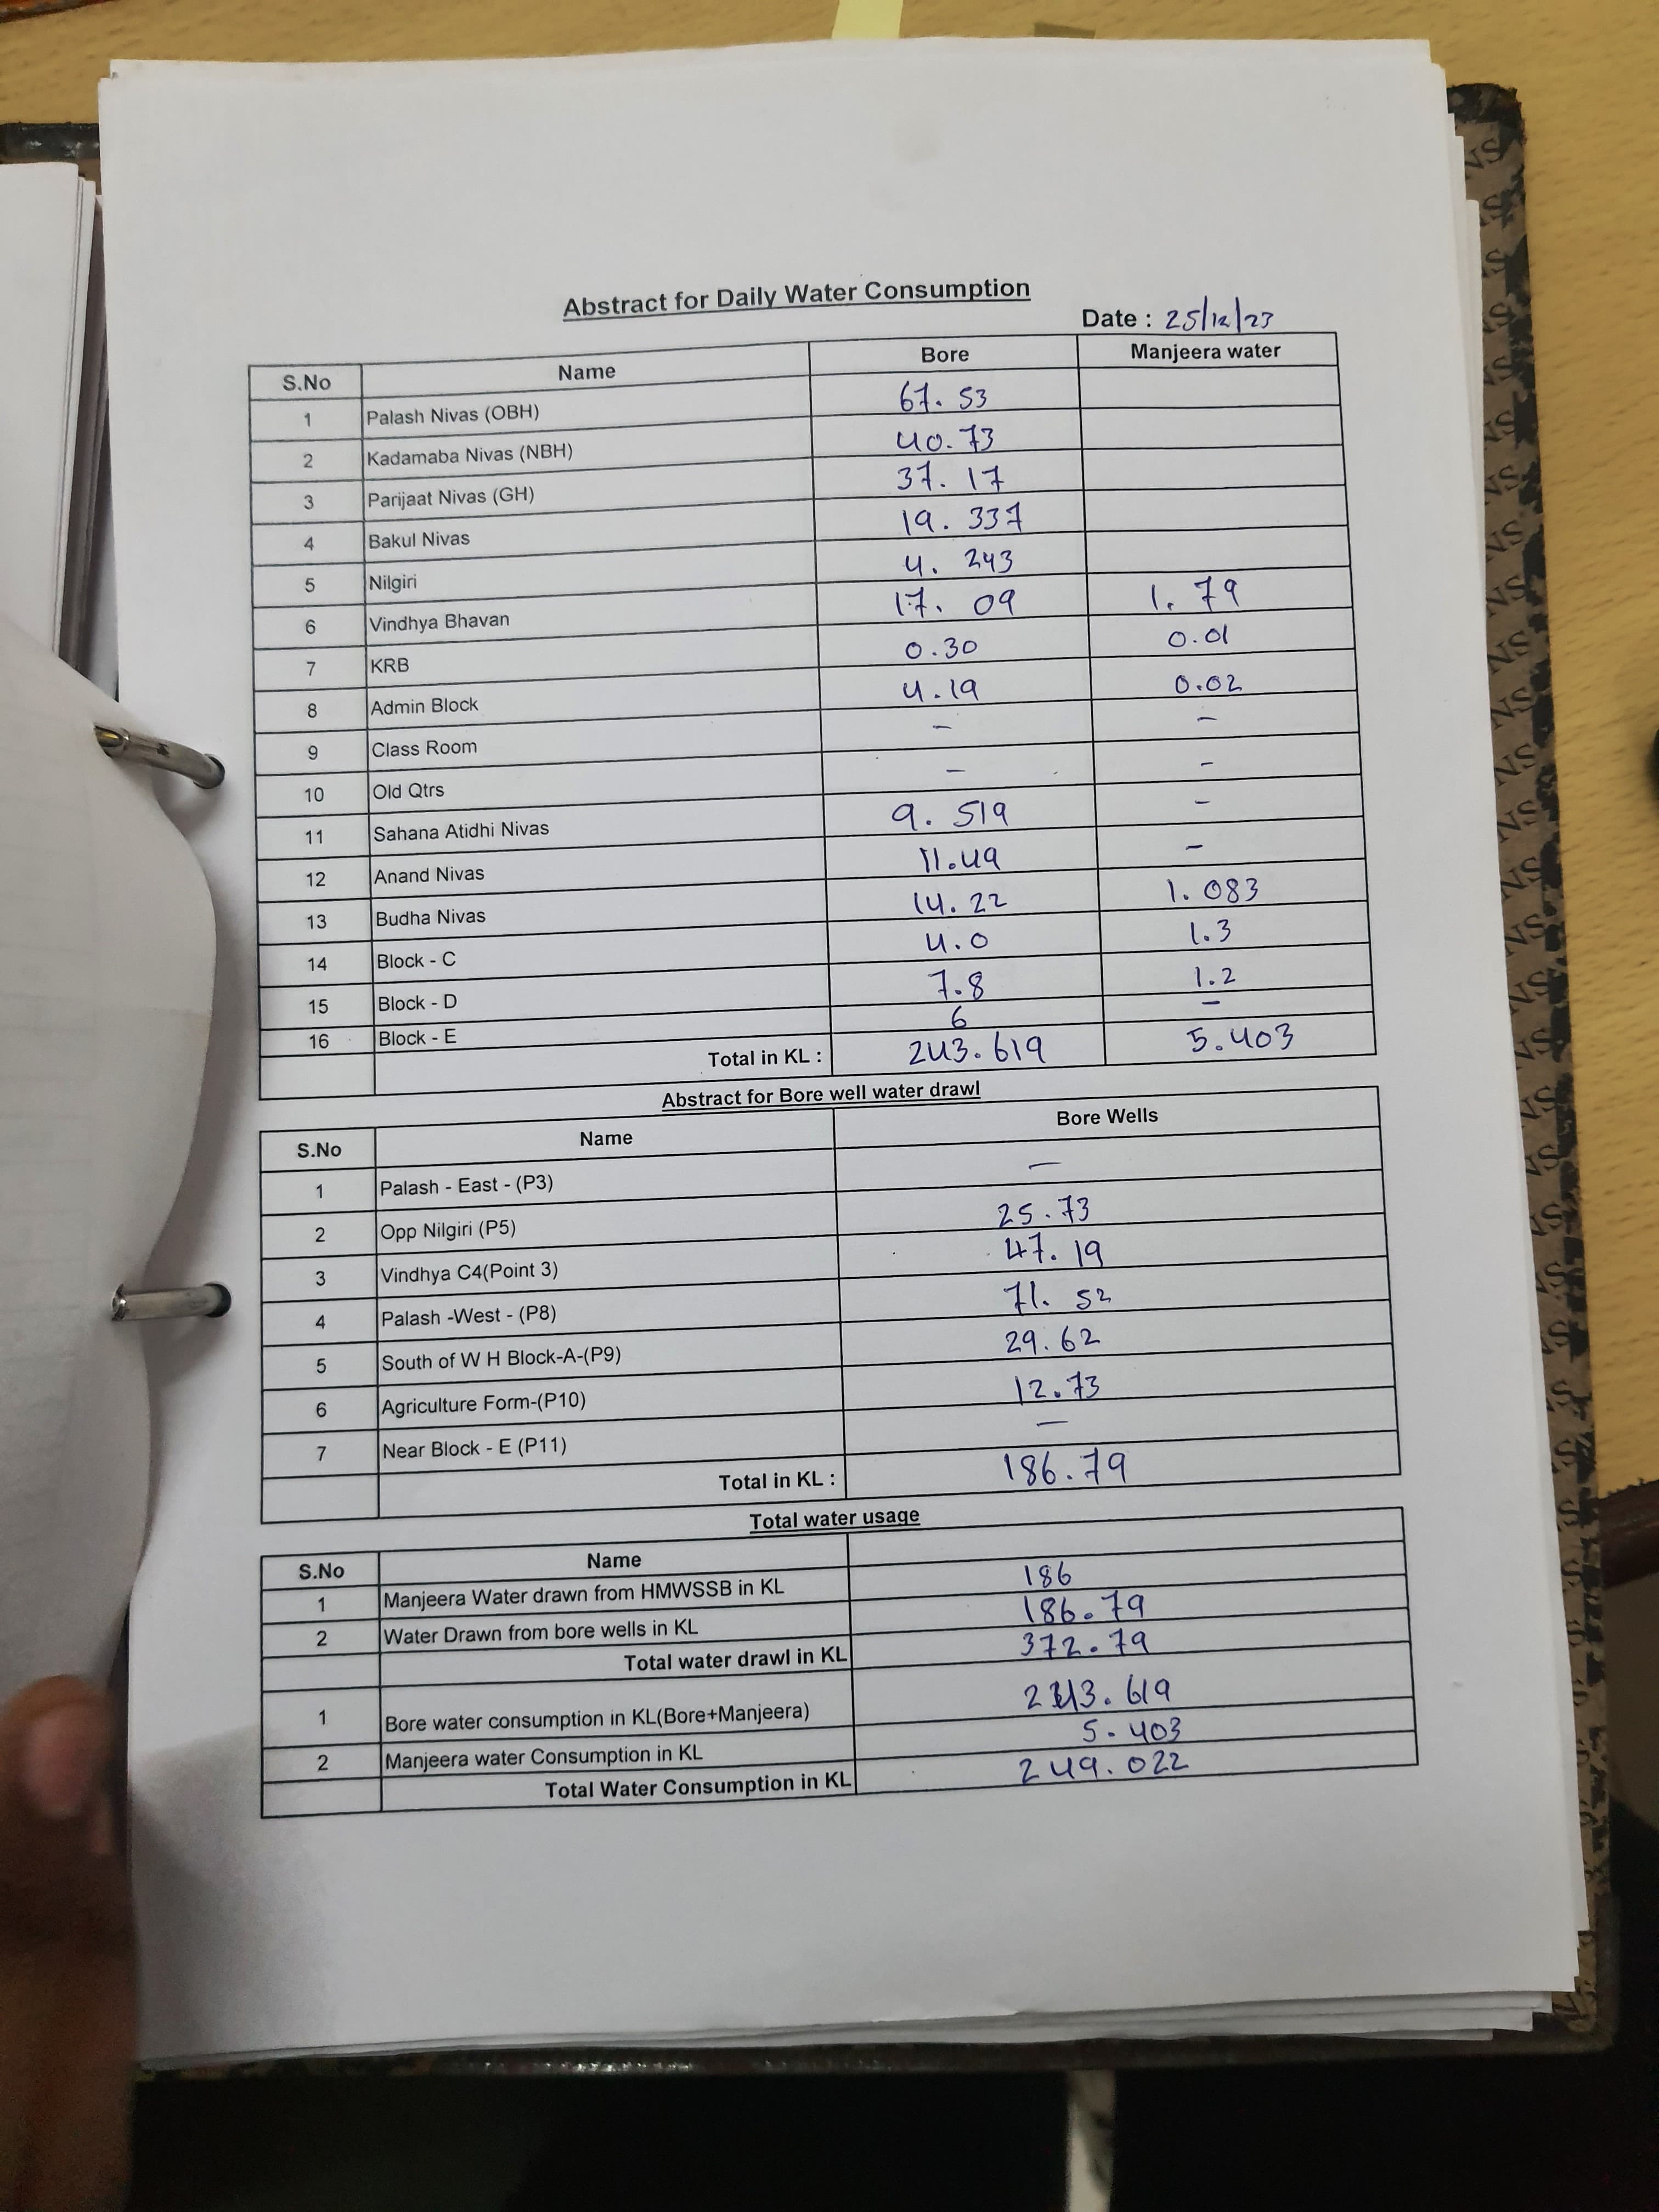 Abstract for Daily Water Consumption
Date : 25/12/23
S.No Name Bore Manjeera water
1 Palash Nivas (OBH) 67.53
2 Kadamaba Nivas (NBH) 40.73
3 Parijaat Nivas (GH) 37.17
4 Bakul Nivas 19.337
5 Nilgiri 4.243
6 Vindhya Bhavan 17.09 1.79
7 KRB 0.30 0.01
8 Admin Block 4.19 0.02
9 Class Room - -
10 Old Qtrs - -
11 Sahana Atidhi Nivas 9.519 -
12 Anand Nivas 11.49 -
13 Budha Nivas 14.22 1.083
14 Block - C 4.0 1.3
15 Block - D 7.8 1.2
16 Block - E 6 -
Total in KL : 243.619 5.403
Abstract for Bore well water drawl
S.No Name Bore Wells
1 Palash - East - (P3) -
2 Opp Nilgiri (P5) 25.73
3 Vindhya C4(Point 3) 47.19
4 Palash -West - (P8) 71.52
5 South of W H Block-A-(P9) 29.62
6 Agriculture Form-(P10) 12.73
7 Near Block - E (P11) -
Total in KL : 186.79
Total water usage
S.No Name
1 Manjeera Water drawn from HMWSSB in KL 186
2 Water Drawn from bore wells in KL 186.79
Total water drawl in KL 372.79
1 Bore water consumption in KL(Bore+Manjeera) 243.619
2 Manjeera water Consumption in KL 5.403
Total Water Consumption in KL 249.022